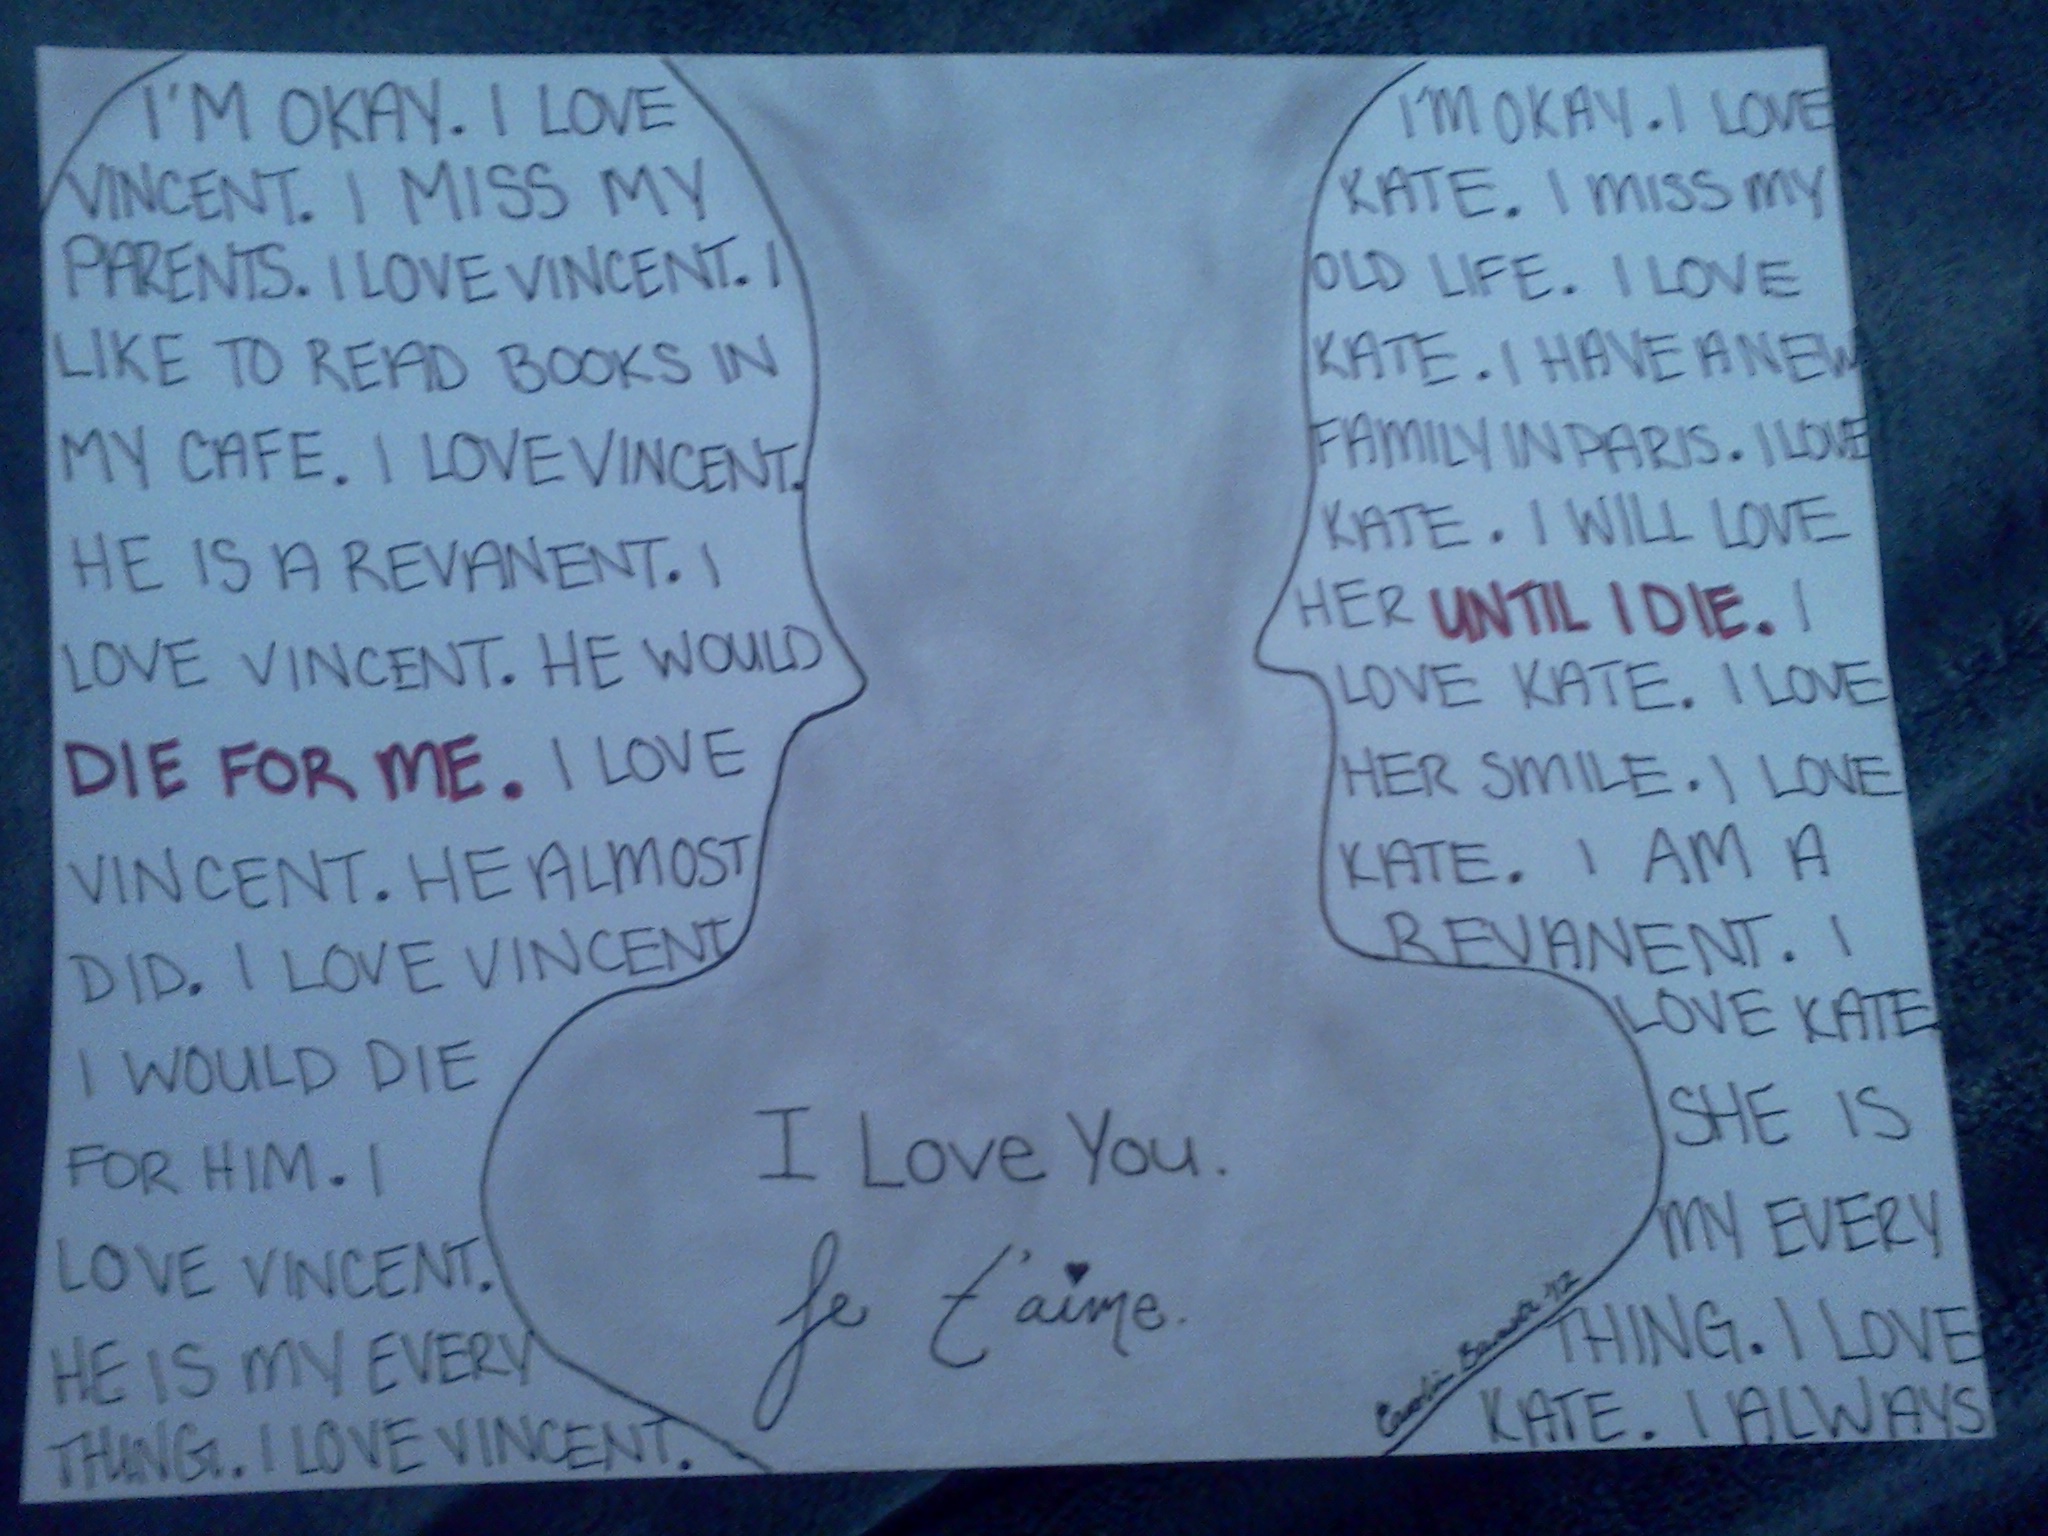 I'M OKAY. I LOVE
VINCENT. I MISS MY
PARENTS. I LOVE VINCENT. I
LIKE TO READ BOOKS IN
MY CAFE. I LOVE VINCENT.
HE IS A REVANENT. I
LOVE VINCENT. HE WOULD
DIE FOR ME. I LOVE
VINCENT. HE ALMOST
DID. I LOVE VINCENT
I WOULD DIE
FOR HIM. I
LOVE VINCENT.
HE IS MY EVERY
THING. I LOVE VINCENT.
I Love You.
Je t'aime.
'12
I'M OKAY. I LOVE
KATE. I MISS MY
OLD LIFE. I LOVE
KATE. I HAVE A NEW
FAMILY IN PARIS. I LOVE
KATE. I WILL LOVE
HER UNTIL I DIE. I
LOVE KATE. I LOVE
HER SMILE. I LOVE
KATE. I AM A
REVANENT. I
LOVE KATE
SHE IS
MY EVERY
THING. I LOVE
KATE. I ALWAYS